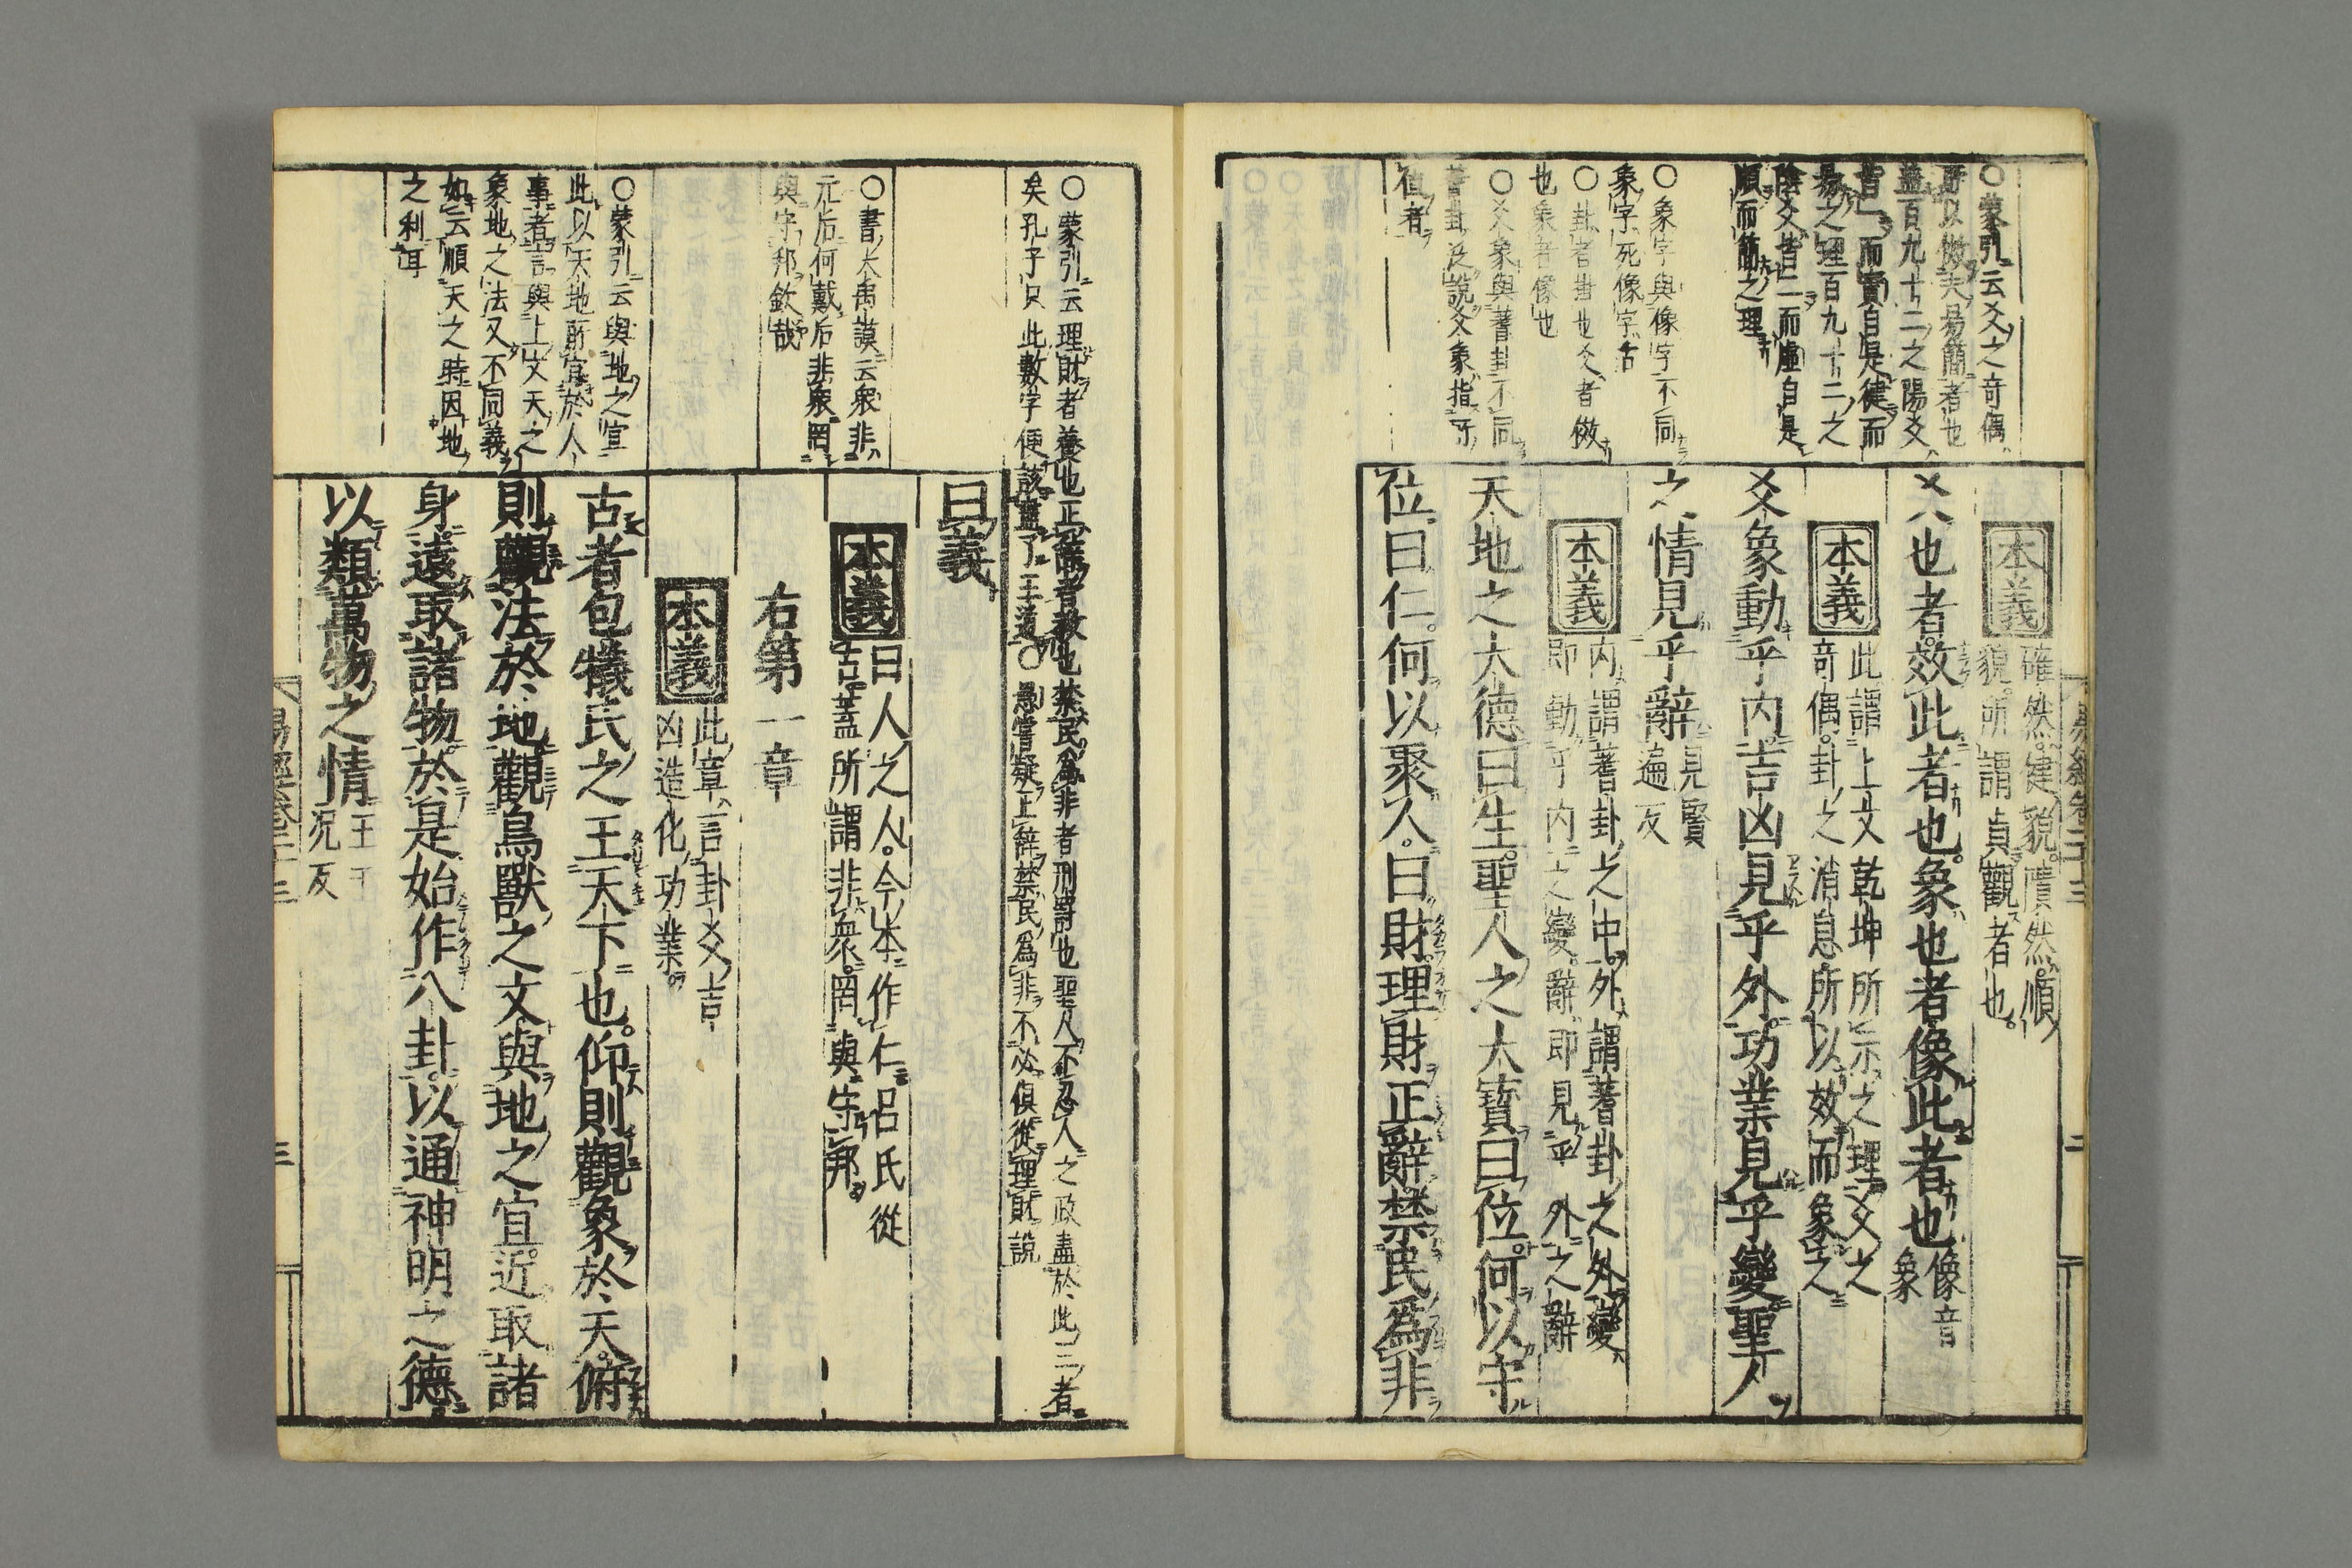 本義
確然健貌隤然順
貌所謂貞觀者也
爻也者效此者也象也者像此者也
像音
象
本義
此謂上文乾坤所示之理爻之
奇偶卦之消息所以效而象之
爻象動乎内吉凶見乎外功業見乎變聖人
之情見乎辭
見賢
遍反
本義
内謂蓍卦之中外謂蓍卦之外變
即動乎内之變辭即見乎外之辭
天地之大德曰生聖人之大寳曰位何以守
位曰仁何以聚人曰財理財正辭禁民爲非
○蒙引云爻之奇偶
所以倣夫易簡者也
蓋百九十二之陽爻
皆一而實自是健而
易之理百九十二之
陰爻皆二而虚自是
順而簡之理
○象字與像字不同
象字死像字活
○卦者卦也爻者倣
也象者像也
○爻象與蓍卦不同
蓍卦泛説爻象指所
值者
○蒙引云理財者養也正辭者教也禁民爲非者刑罰也聖人不忍人之政盡於此三者
矣孔子只此數字便該盡了王道○愚嘗疑正辭禁民爲非不必俱從理財説
曰義
本義
曰人之人今本作仁呂氏從
古蓋所謂非衆罔與守邦
右第一章
本義
此章言卦爻吉
凶造化功業
古者包犧氏之王天下也仰則觀象於天俯
則觀法於地觀鳥獸之文與地之宜近取諸
身遠取諸物於是始作八卦以通神明之德
以類萬物之情
王于
况反
○書大禹謨云衆非
元后何戴后非衆罔
與守邦欽哉
○蒙引云與地之宜
此以天地所宜於人
事者言與上文天之
象地之法又不同義
如云順天之時因地
之利耳